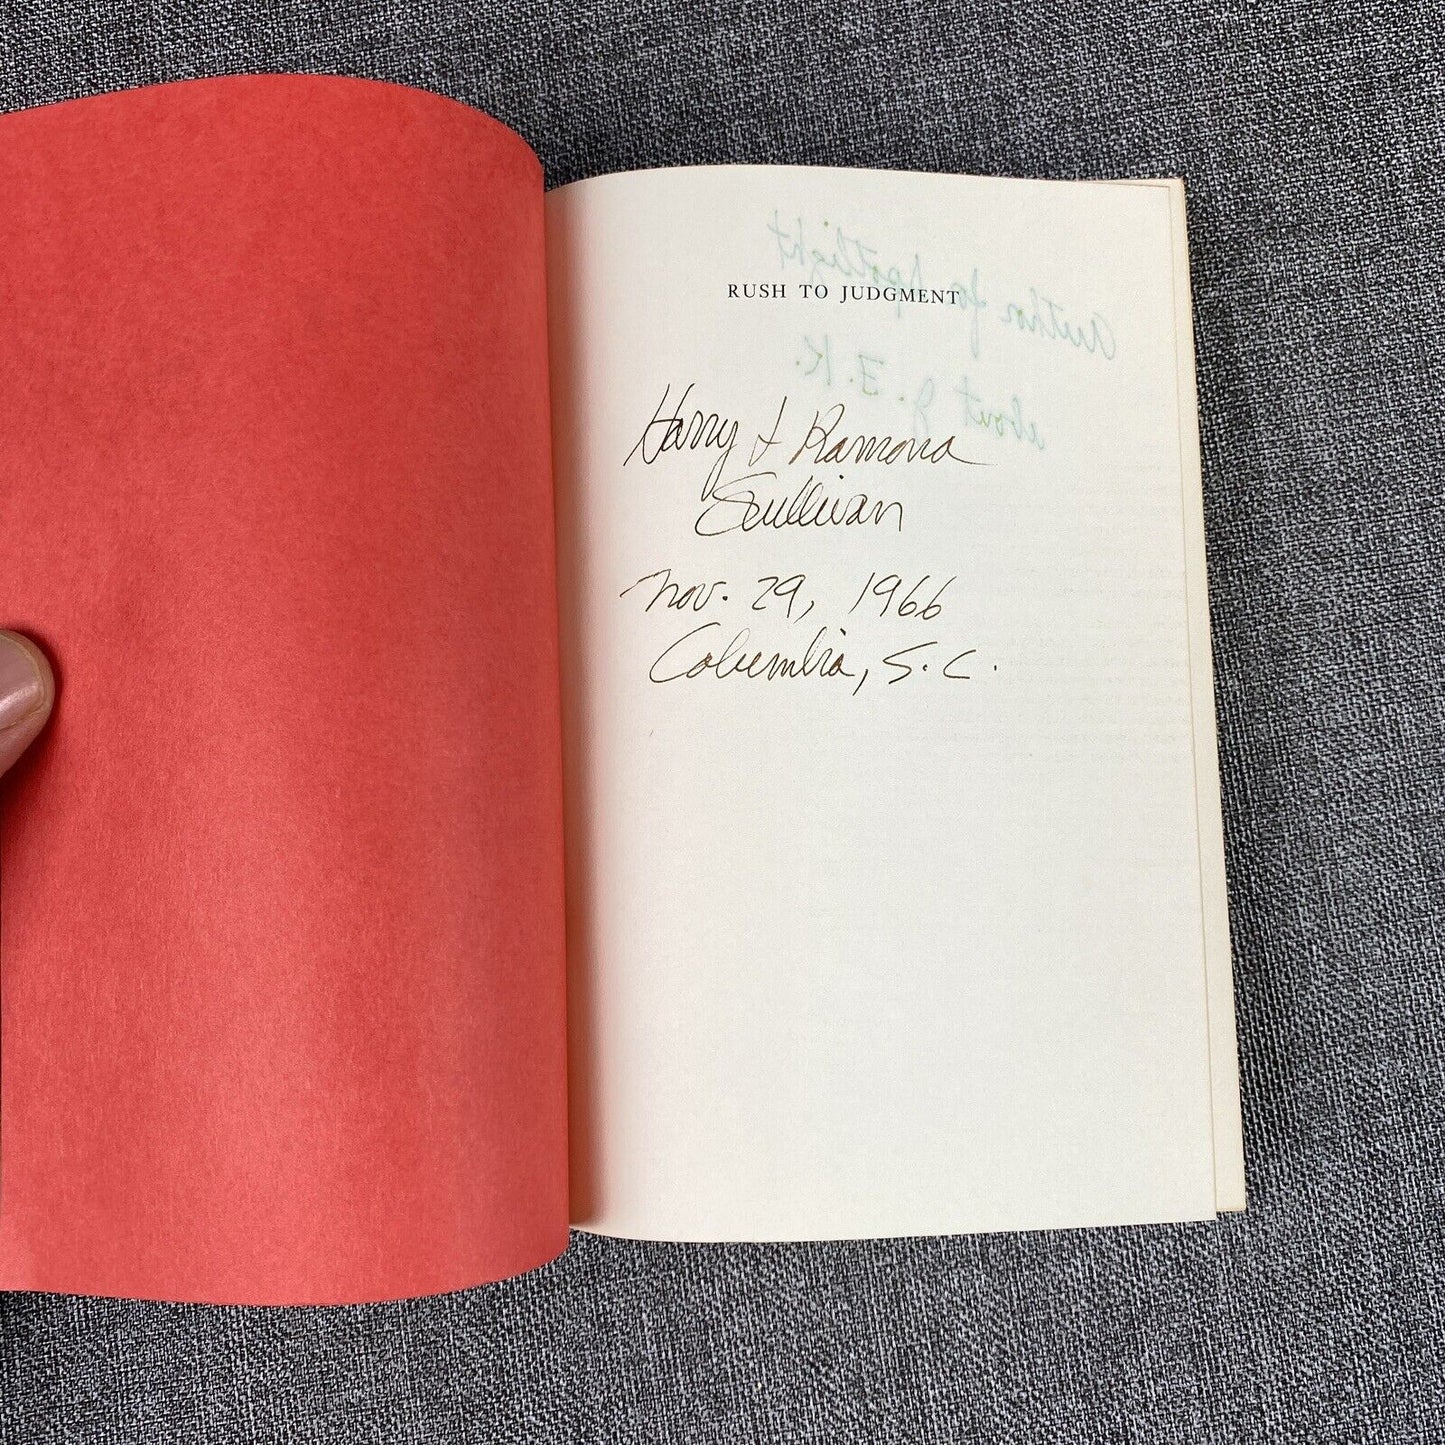 RUSH TO JUDGMENT
Author to spotlight
about J. F. K.
Harry & Ramona
Sullivan
Nov. 29, 1966
Columbia, S. C.